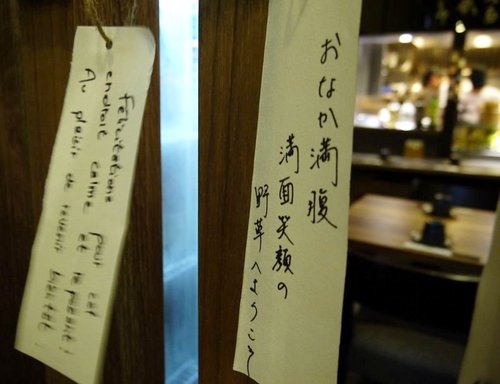 Félicitations pour cet
endroit calme et reposant!
Au plaisir de revenir bientôt
おなか満腹
満面笑顔の
野草へようこそ